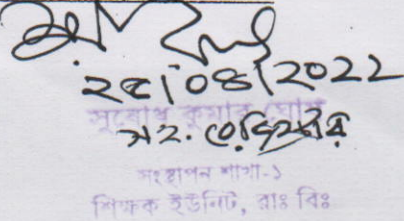 ২৫|০৪|২০২২
সুবোধ কুমার ঘোষ
সহ. রেজিস্ট্রার
সংস্থাপন শাখা-১
শিক্ষক ইউনিট, রাঃ বিঃ